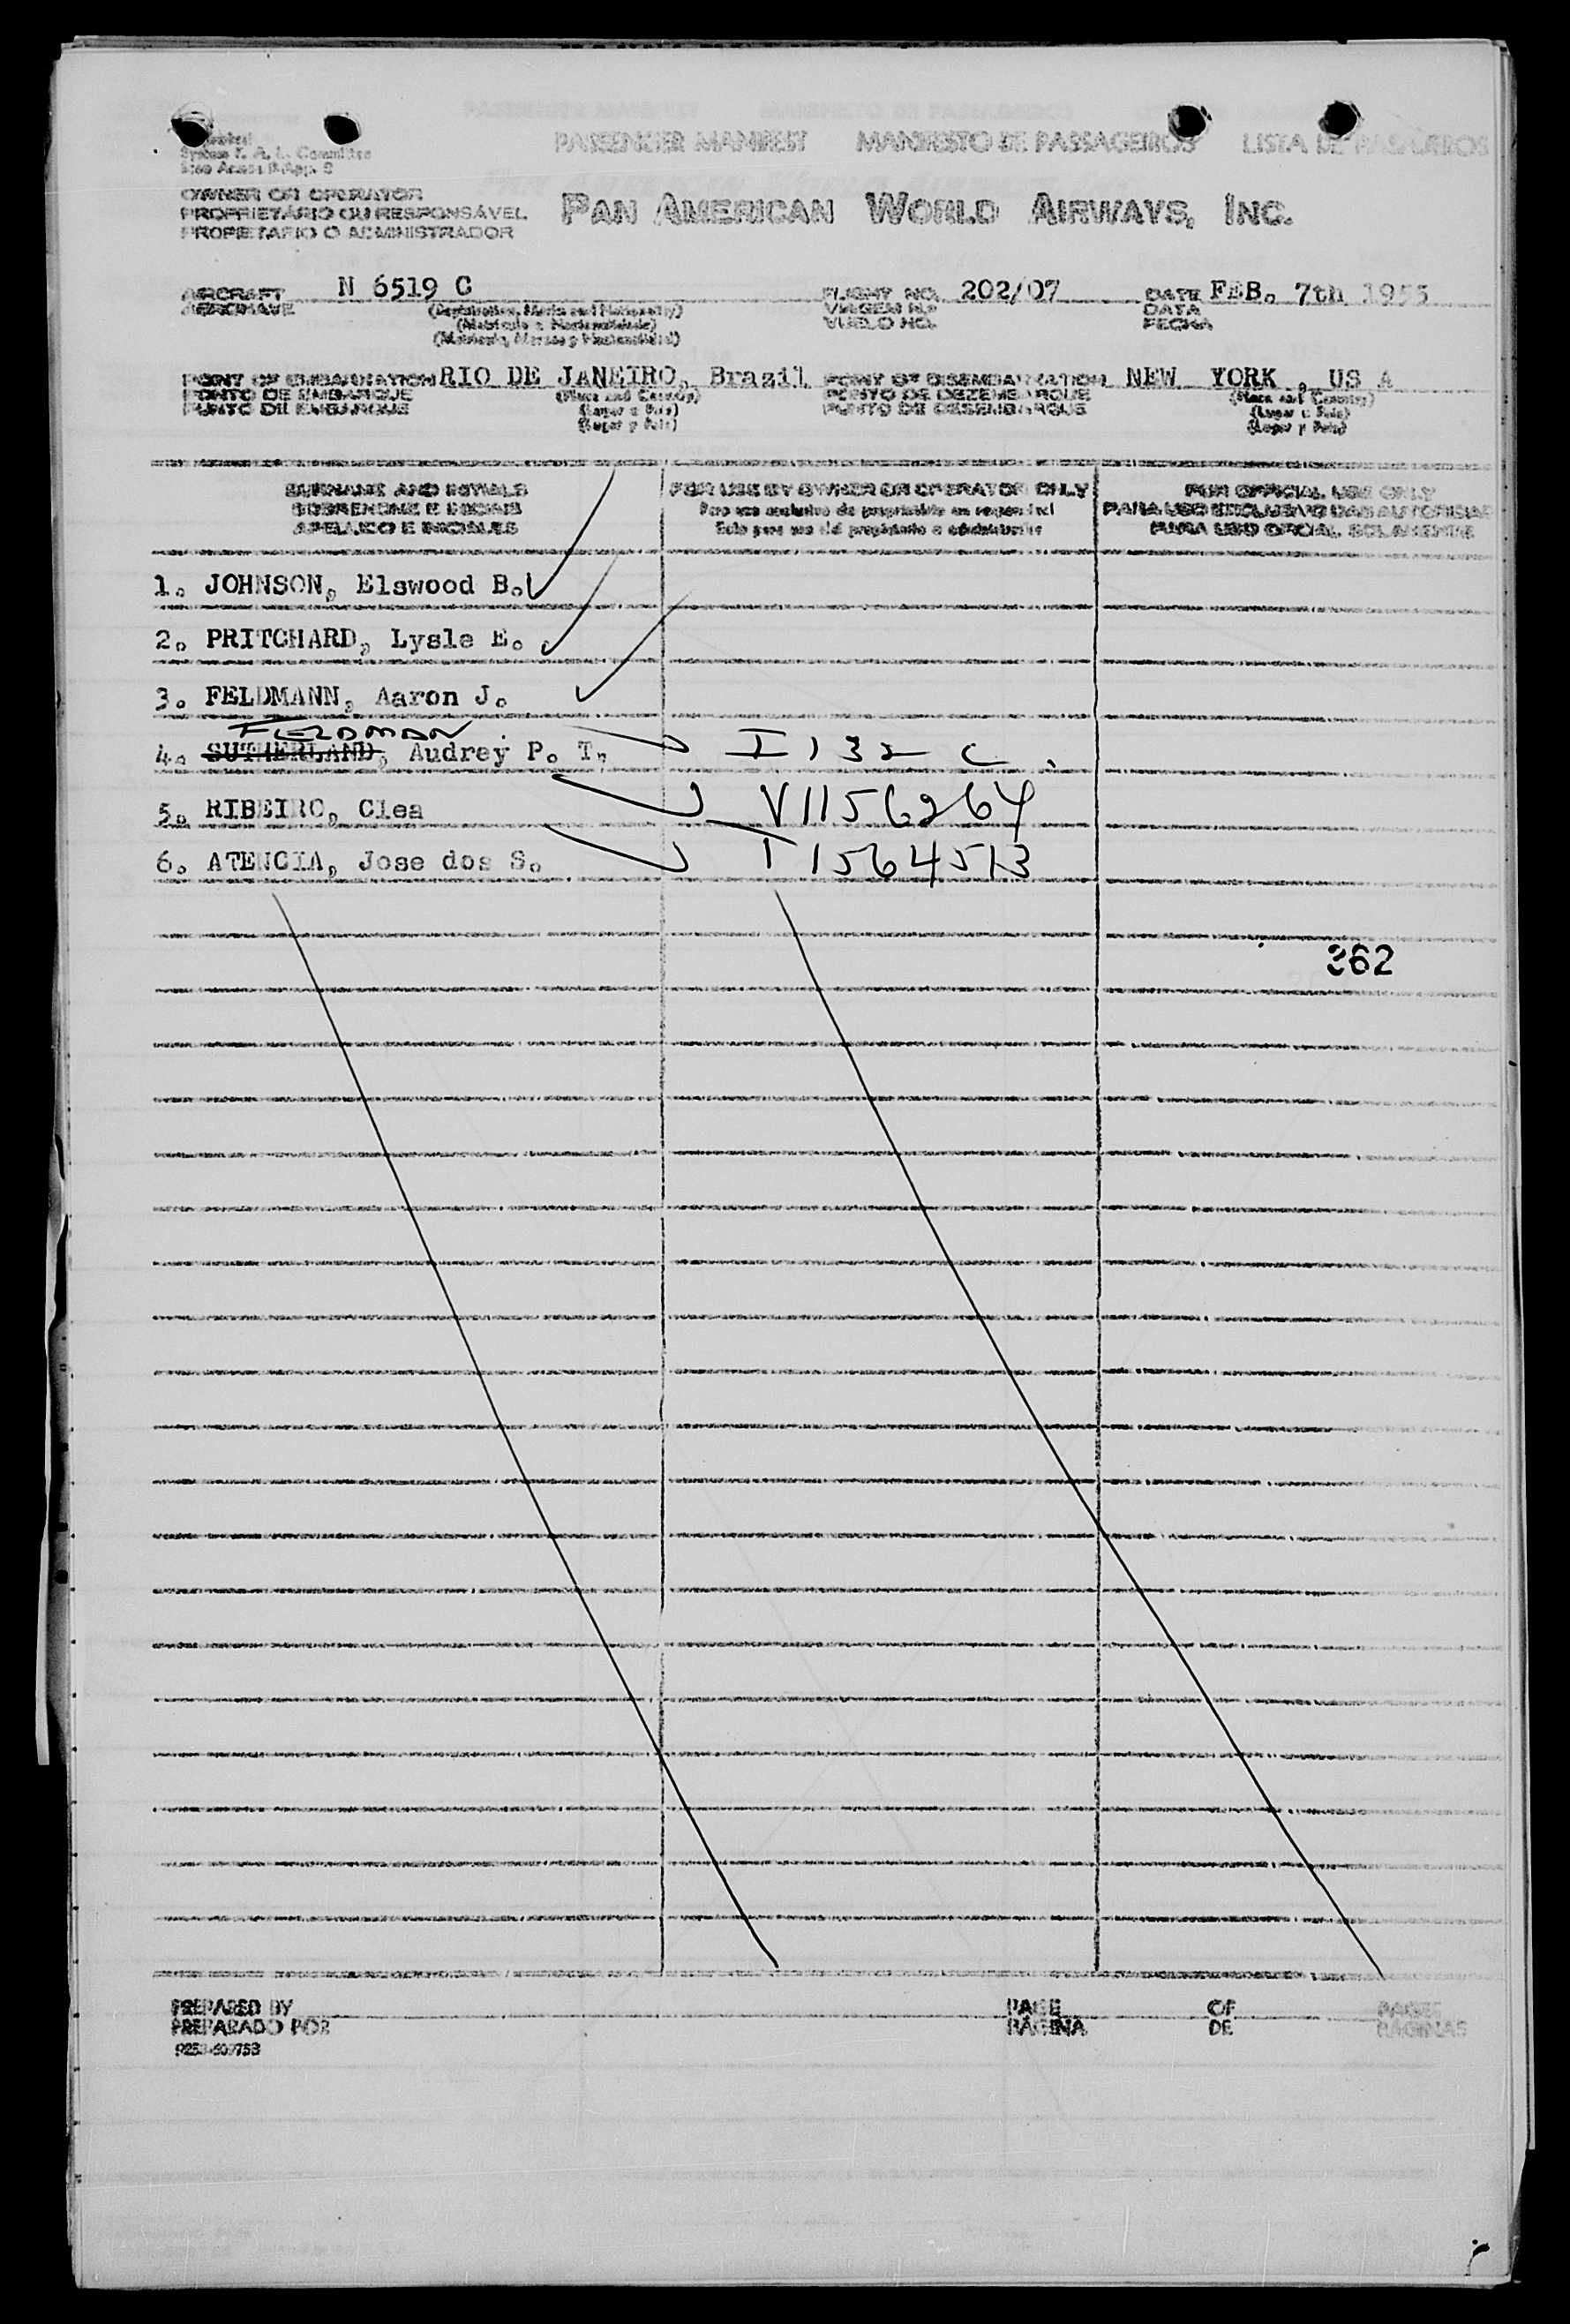 PASSENGER MANIFEST MANIFESTO DE PASSAGEIROS LISTA DE PASAJEROS
System F. A. L. Committee
OWNER OR OPERATOR
PROPRIETÁRIO OU RESPONSÁVEL
PROPIETARIO O ADMINISTRADOR
PAN AMERICAN WORLD AIRWAYS, INC.
AIRCRAFT N 6519 C FLIGHT NO. 202/07 DATE FEB. 7th 1955
AERONAVE (Registration, Marks and Nationality) VIAGEM N.º DATA
(Matrícula e Nacionalidade) VUELO NO. FECHA
(Matricula, Marcas y Nacionalidad)
POINT OF EMBARKATION RIO DE JANEIRO, Brazil POINT OF DISEMBARKATION NEW YORK, US A
PONTO DE EMBARQUE (Place and Country) PONTO DE DEZEMBARQUE (Place and Country)
PUNTO DE EMBARQUE (Lugar e País) PUNTO DE DESEMBARQUE (Lugar e País)
(Lugar y País) (Lugar y País)
SURNAME AND INITIALS FOR USE BY OWNER OR OPERATOR ONLY FOR OFFICIAL USE ONLY
SOBRENOME E INICIAIS Para uso exclusivo do proprietário ou responsável PARA USO EXCLUSIVO DAS AUTORIDAD
APELLIDO E INICIALES Solo para uso del propietario o administrador PARA USO OFICIAL SOLAMENTE
1. JOHNSON, Elswood B.
2. PRITCHARD, Lysle E.
3. FELDMANN, Aaron J.
FELDMAN
4. SUTHERLAND, Audrey P. T. I 132 C
5. RIBEIRO, Clea V1156264
6. ATENCIA, Jose dos S. T 1564513
362
PREPARED BY PAGE OF PAGES
PREPARADO POR PÁGINA DE PÁGINAS